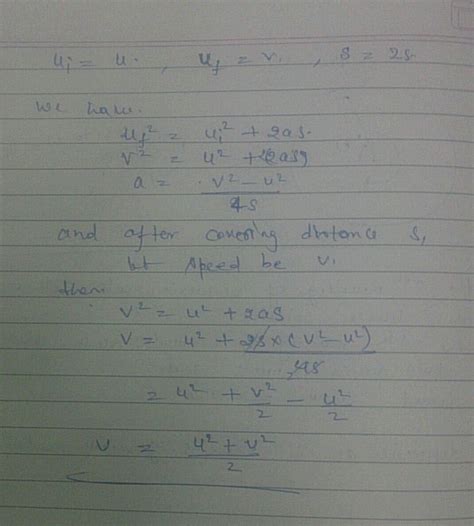 u_i = u. , u_f = v. , S = 2s.
we have.
u_f² = u_i² + 2as.
v² = u² + 4as
a = v² - u² / 4s
and after covering distance s,
let speed be v.
then
v² = u² + 2as
v = u² + 2s × (v² - u²) / 4s
= u² + v²/2 - u²/2
v = u² + v² / 2